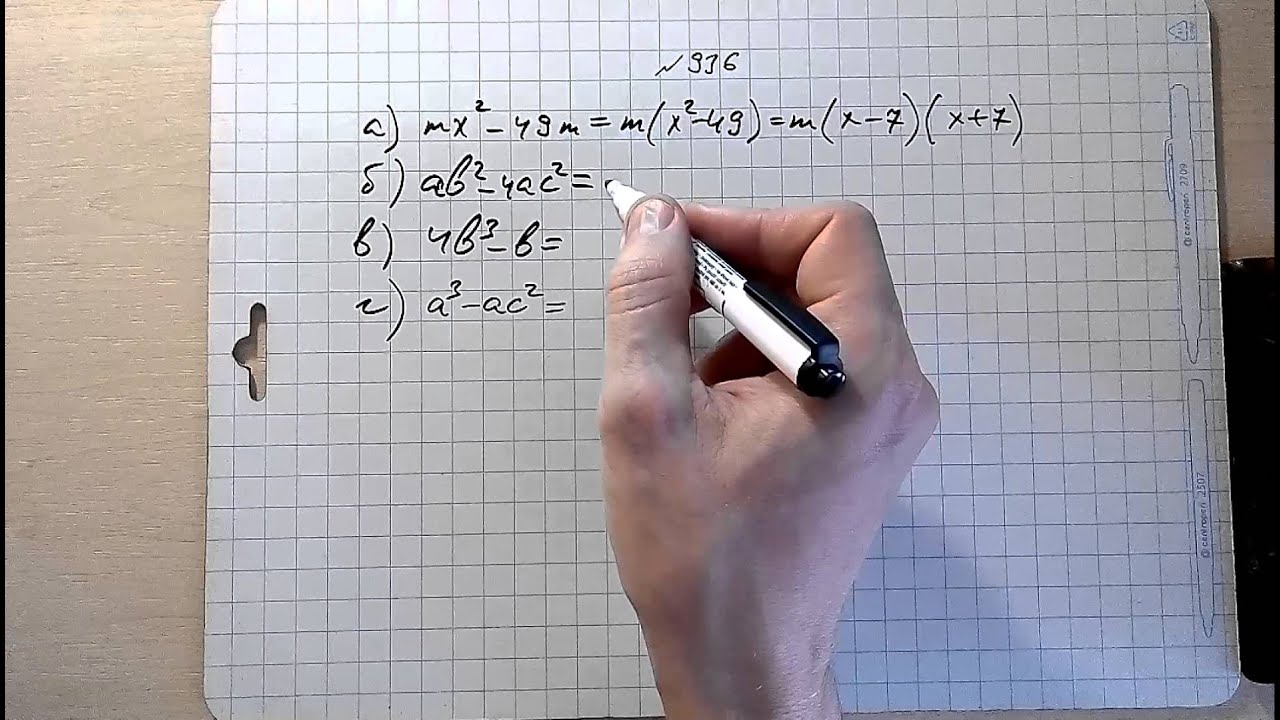 №936
а) mx² - 49m = m(x² - 49) = m(x - 7)(x + 7)
б) ab² - 4ac² =
в) 4b³ - b =
г) a³ - ac² =
centropen 2709
centropen 2507